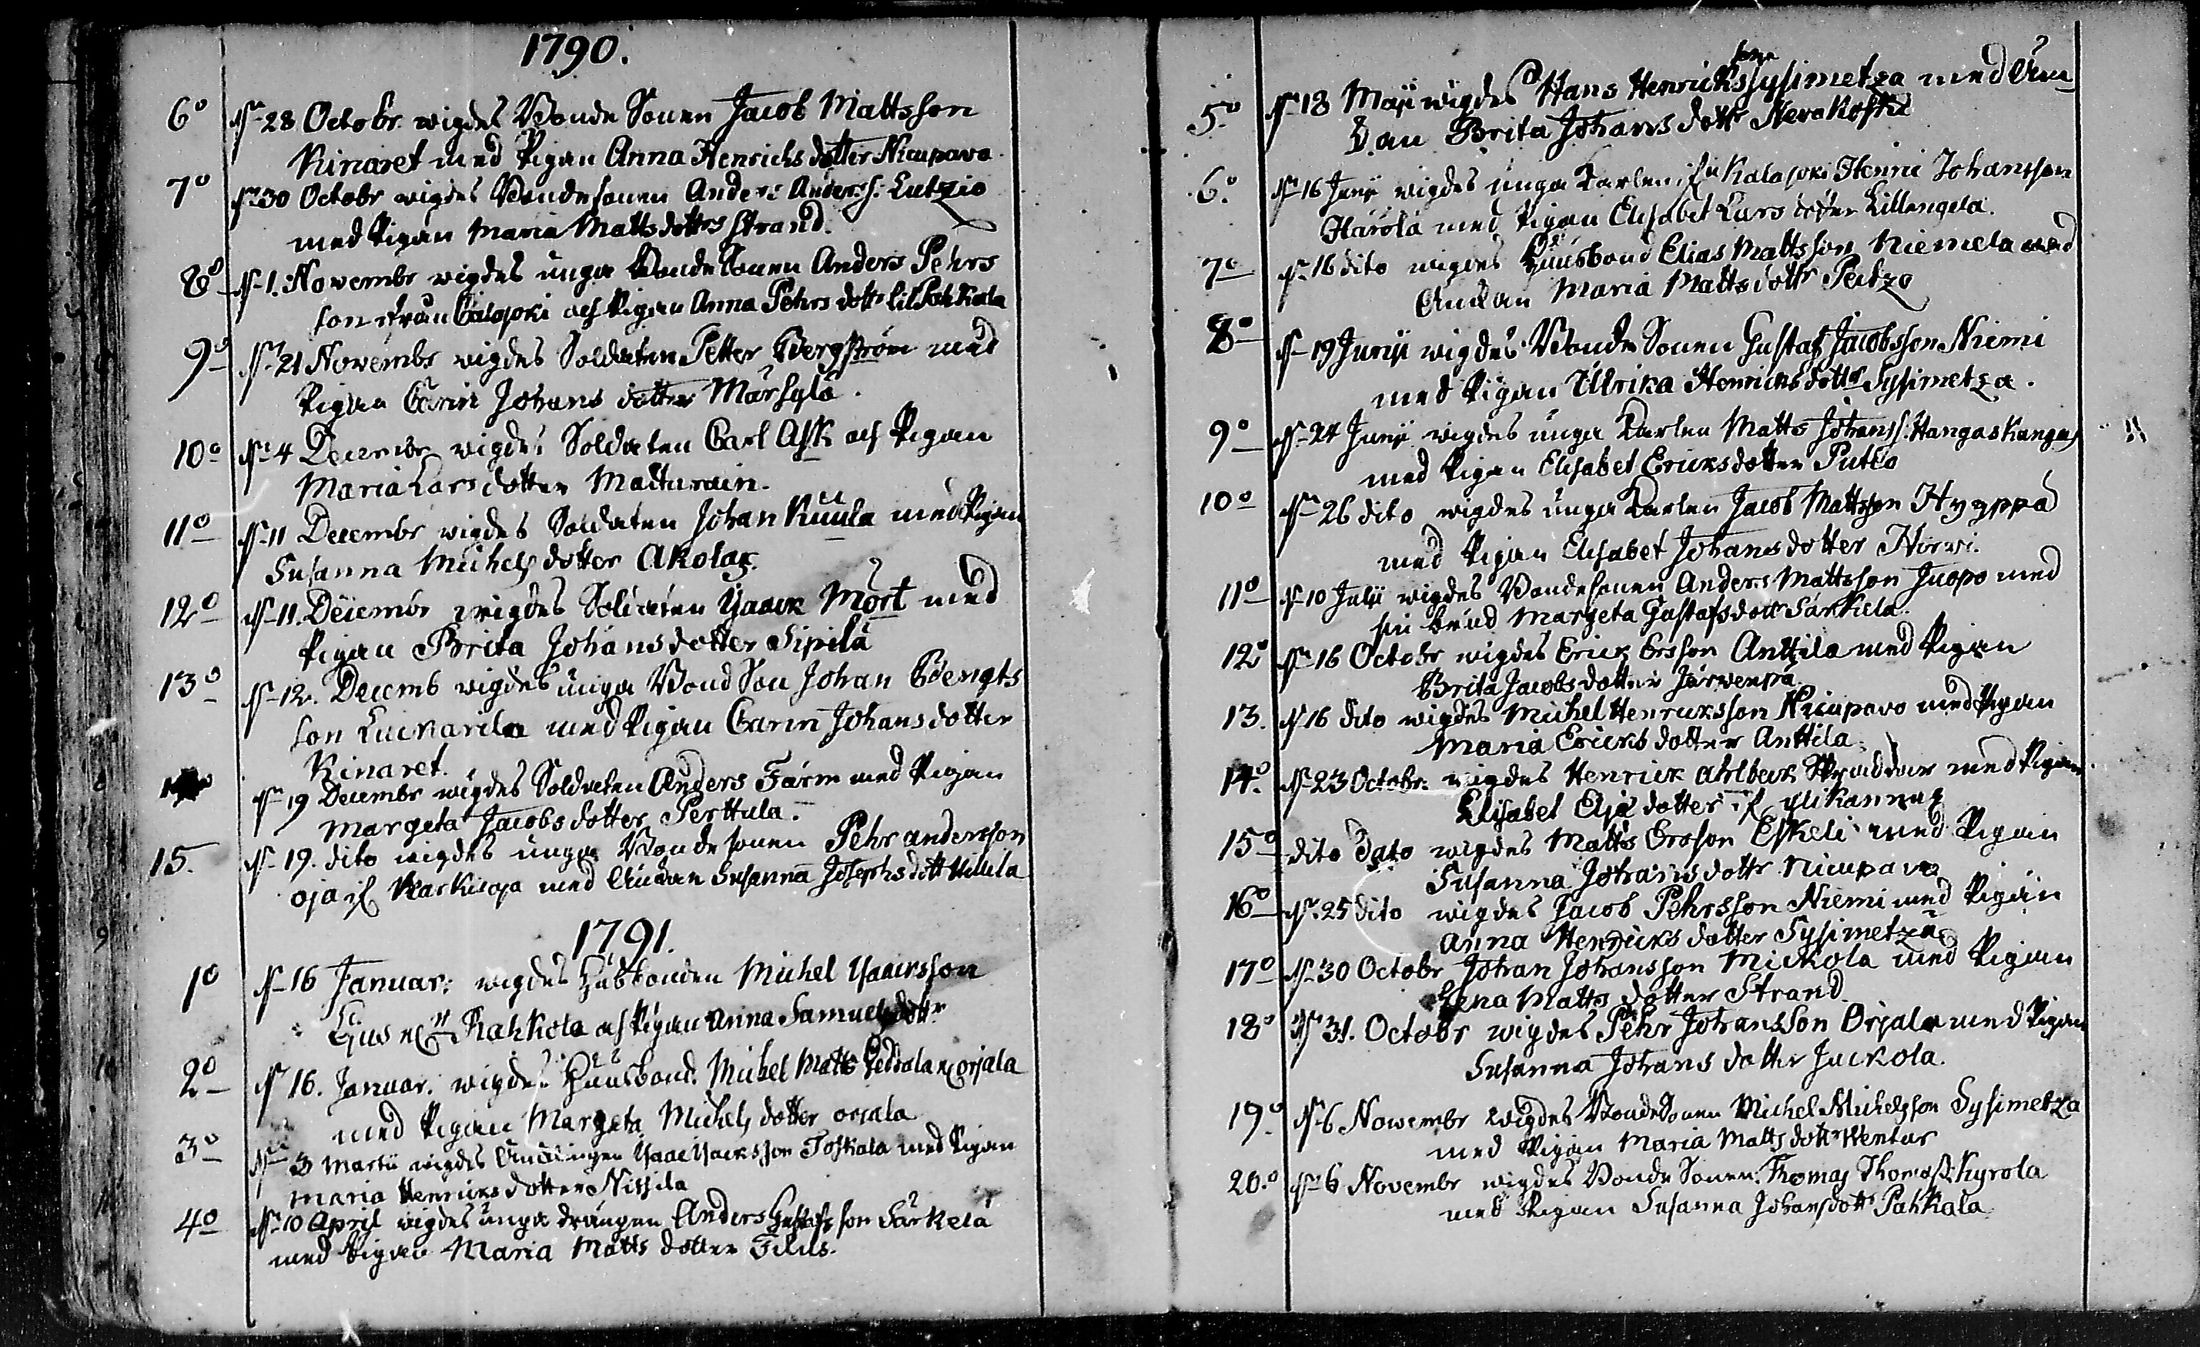 1790.
6o d. 28 Octobr. wigdes Bonde Sonen Jacob Mattsson
Kinaret med Pigan Anna Henrichs dotter Niccupavo
7o d. 30 Octobr wigdes Bondesonen Anders Anderss: Lutzio
med Pigan Maria Matts dotter Strand.
8o d. 1. Novembr wigdes unga Bonde Sonen Anders Pehrs
son ifrån Calajoki och Pigan Anna Pehrs dottr
9o d. 21 Novembr wigdes Soldaten Petter Bergström med
Pigan Carin Johans dotter Marsylä.
10o d. 4 Decembr wigdes Soldaten Carl Ask och Pigan
Maria Lars dotter
11o d. 11 Decembr wigdes Soldaten Johan Kuula med Pigan
Susanna Michels dotter Akola
12o d. 11. Decembr wigdes Soldaten Ysaack Mört med
Pigan Brita Johans dotter Sipilä
13o d. 12. Decemb wigdes unga Bond Son Johan Bengts
son Luckarila med Pigan Carin Johans dotter
Kinaret.
d. 19 Decembr wigdes Soldaten Anders Färm med Pigan
Margeta Jacobs dotter Perttula.
15. d. 19. dito wigdes unga Bonde sonen Pehr andersson
oja med Änckan Susanna Josephs dott Uilula
1791.
1o d. 16 Januar: wigdes Husbonden Michel Ysaacsson
Rahkola och Pigan Anna Samuels dottr
2o d. 16. Januar. wigdes Huusbond. Michel Matts orjala
med Pigan Margeta Michels dotter orjala
3o d. 3 Martii wigdes Änklingen Ysaac Ysacksson Toskala med Pigan
Maria Henricks dotter Nissila
4o d. 10 April wigdes unga drängen Anders Gustafs son Särkelä
med Pigan Maria Matts dotter Filus.
5o d. 18 Maji wigdes Hans Henricks son Sysimetza med Änc
kan Brita Johans dottr Nevakoski
6o d. 16 Junii wigdes unga Karlen, ifr Kalajoki Henric Johansson
Harola med Pigan Elisabet Lars dotter Lillengelä.
7o d. 16 dito wigdes Huusbond Elias Mattsson Niemelä med
Änckan Maria Matts dottr Peitzo
8o d. 19 Junii wigdes Bonde Sonen Gustaf Jacobsson Niemi
med Pigan Ulrika Henricks dottr Sysimetza.
9o d. 24 Junii wigdes unga Karlen Matts Johanss: Hangaskangas
med Pigan Elisabet Ericks dotter Putko
10o d. 26 dito wigdes unga Karlen Jacob Mattsson Hyyppä
med Pigan Elisabet Johans dotter Hirvi.
11o d. 10 Julii wigdes Bondesonen Anders Mattsson Juopo med
sin brud Margeta Gustafs dottr Särkelä.
12o d. 16 Octobr wigdes Erick Ersson Anttila med Pigan
Brita Jacobs dotter Järwenpä
13. d. 16 dito wigdes Michel Henricksson Niccupavo med Pigan
Maria Ericks dotter Anttila.
14o d. 23 Octobr. wigdes Henrick ahlbeck Skräddar med Pigan
Elisabet Elja dotter ifr ylikannus
15o dito Dato wigdes Matts Ersson Eskeli med Pigan
Susanna Johans dottr Nicupavo
16o d. 25 dito wigdes Jacob Pehrsson Niemi med Pigan
Anna Henricks dotter Sysimetza
17o d. 30 Octobr Johan Johansson Mickola med Pigan
Lena Matts dotter Strand
18o d. 31. Octobr wigdes Pehr Johansson Orjala med Pigan
Susanna Johans dotter Juckola.
19o d. 6 Nowembr wigdes Bonde Sonen Michel Michelsson Sysimetza
med Pigan Maria Matts dottr Wentus
20.o d. 6 Novembr wigdes Bonde Sonen Thomas Thomass: Kyrola
med Pigan Susanna Johans dottr Pahkala